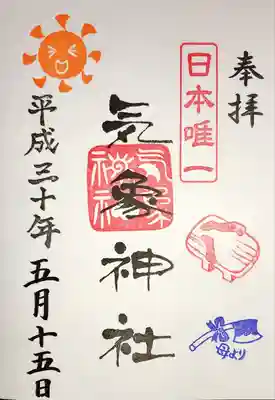 奉拝
日本唯一
気象神社
気象神社
平成三十年五月十五日
母より